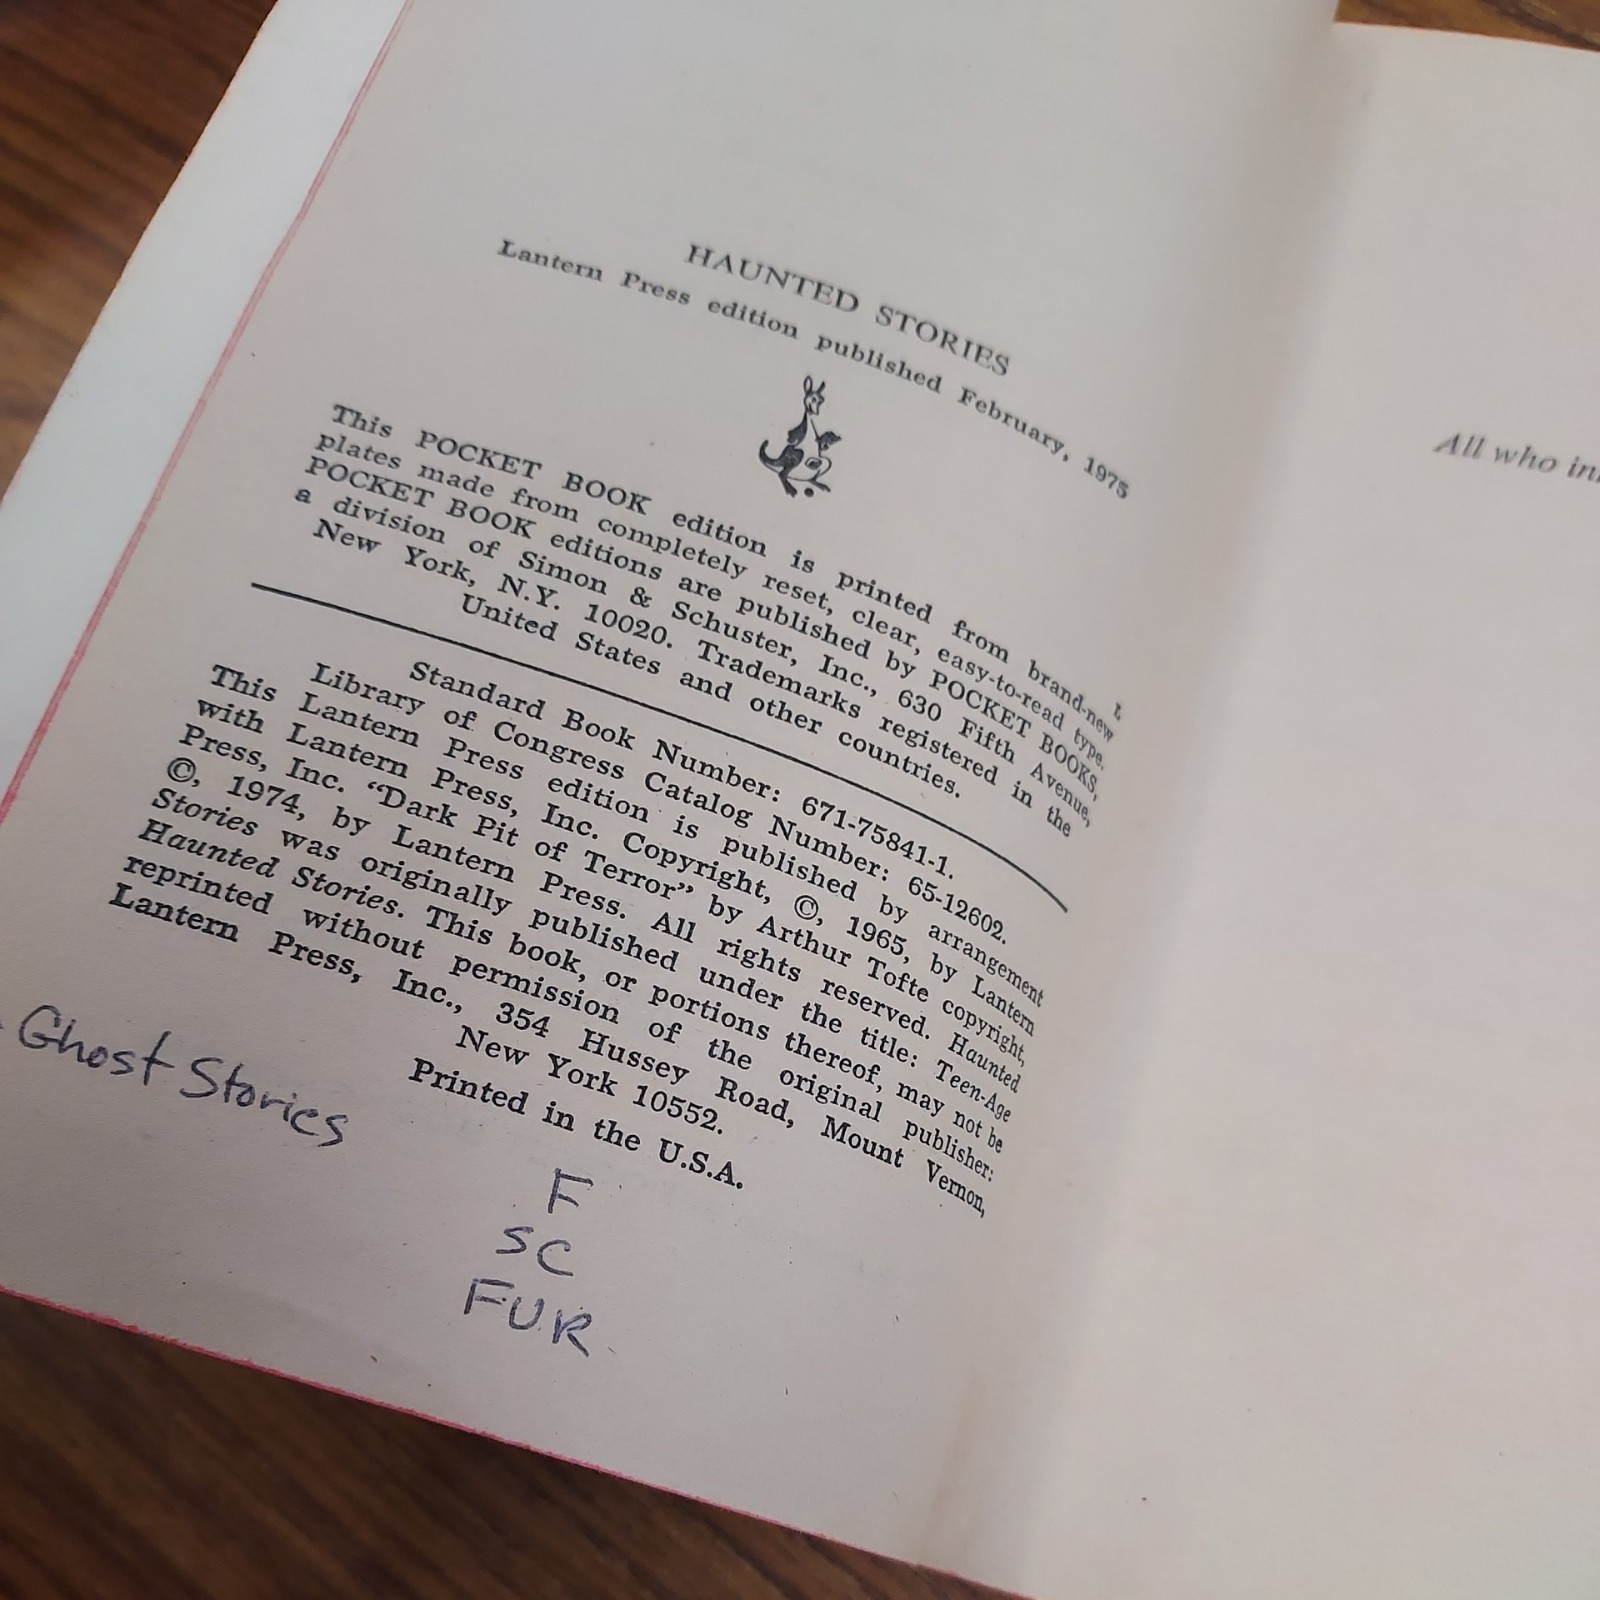 HAUNTED STORIES
Lantern Press edition published February, 1975
L
This POCKET BOOK edition is printed from brand-new
plates made from completely reset, clear, easy-to-read type.
POCKET BOOK editions are published by POCKET BOOKS,
a division of Simon & Schuster, Inc., 630 Fifth Avenue,
New York, N.Y. 10020. Trademarks registered in the
United States and other countries.
Standard Book Number: 671-75841-1.
Library of Congress Catalog Number: 65-12602.
This Lantern Press edition is published by arrangement
with Lantern Press, Inc. Copyright, ©, 1965, by Lantern
Press, Inc. "Dark Pit of Terror" by Arthur Tofte copyright,
©, 1974, by Lantern Press. All rights reserved. Haunted
Stories was originally published under the title: Teen-Age
Haunted Stories. This book, or portions thereof, may not be
reprinted without permission of the original publisher:
Lantern Press, Inc., 354 Hussey Road, Mount Vernon,
New York 10552.
Printed in the U.S.A.
Ghost Stories
F
SC
FUR
All who